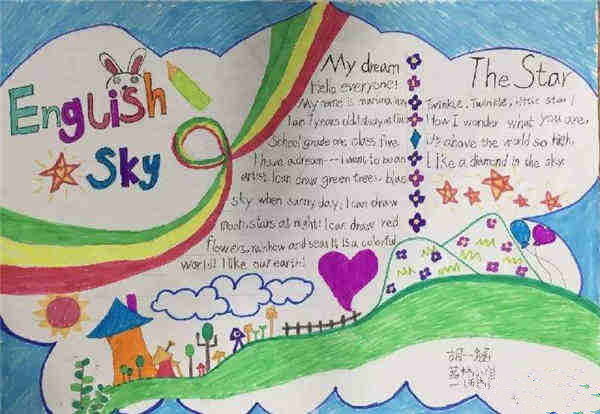 English
Sky
My dream
Hello everyone!
My name is
I am 7 years old. I study at
School grade one, class five.
I have a dream--I want to be an
artist. I can draw green trees, blue
sky when sunny day; I can draw
moon, stars at night! I can draw red
flowers, rainbow and sea. It is a colorful
world! I like our earth!
The Star
Twinkle, Twinkle, little star!
How I wonder what you are,
Up above the world so high,
Like a diamond in the sky.
胡一